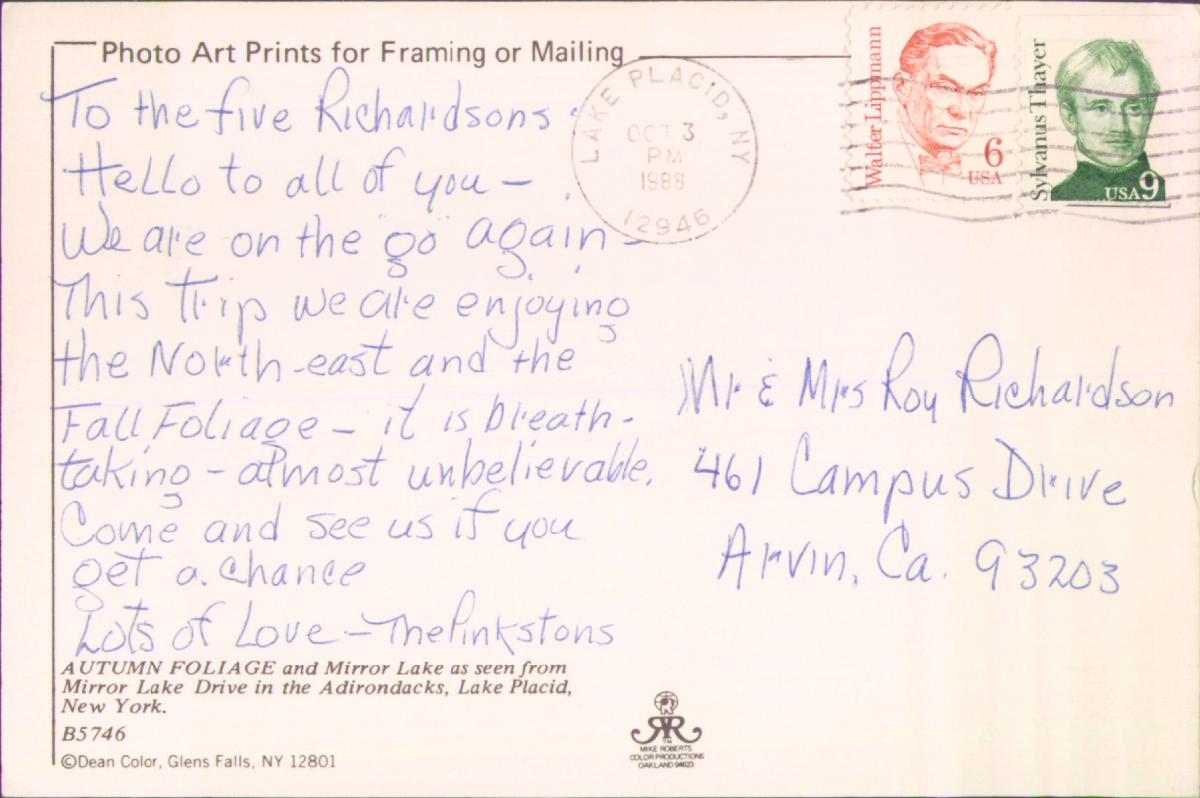 Photo Art Prints for Framing or Mailing
To the five Richardsons.
Hello to all of you -
We are on the "go" again -
This trip we are enjoying
the North-east and the
Fall Foliage - it is breath-
taking - almost unbelievable.
Come and see us if you
get a chance
Lots of Love - The Pinkstons
AUTUMN FOLIAGE and Mirror Lake as seen from
Mirror Lake Drive in the Adirondacks, Lake Placid,
New York.
B5746
©Dean Color, Glens Falls, NY 12801
LAKE PLACID, NY
OCT 3
PM
1988
12946
Walter Lippmann
6
USA
Sylvanus Thayer
USA 9
Mr & Mrs Roy Richardson
461 Campus Drive
Arvin, Ca. 93203
TM
MIKE ROBERTS
COLOR PRODUCTIONS
OAKLAND 94623